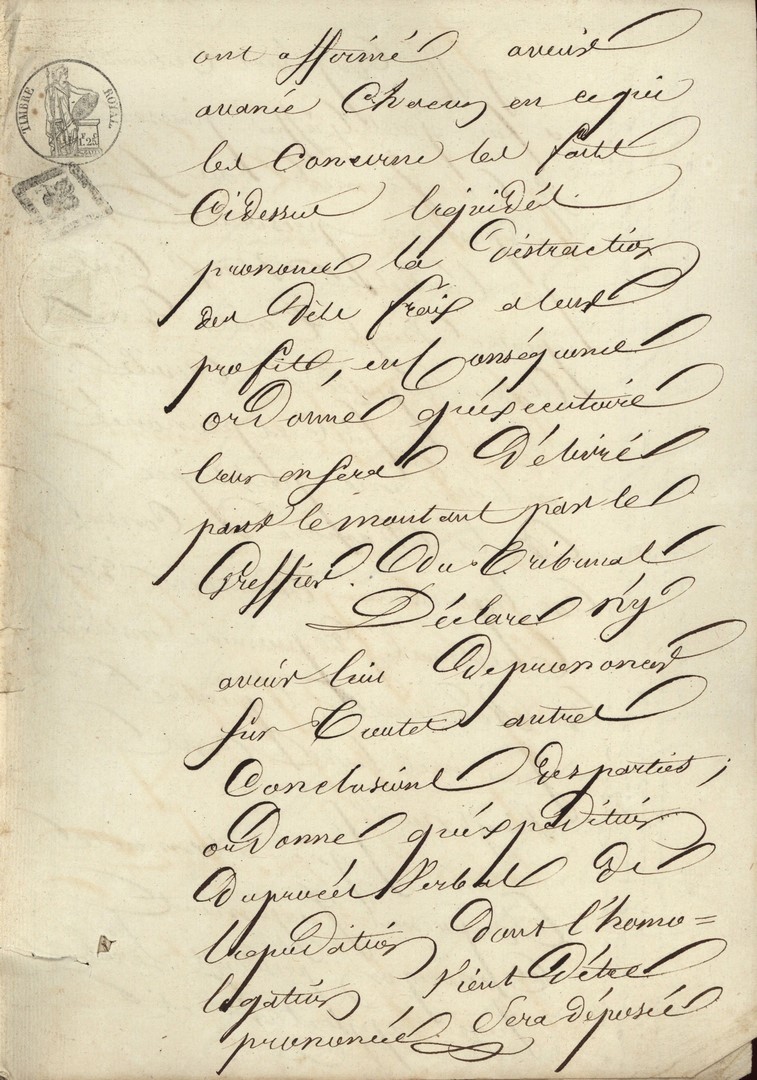 TIMBRE ROYAL
1f. 25c
ont affirmé avoir
avancé Chacun en ce qui
les Concerne les faits
Cidessus liquidés.
prononce la Distraction
des Dits frais a leurs
profits, en Conséquence
ordonne qu'éxecutoire
leur en sera Délivré
pour le montant par le
Greffier. du Tribunal
Déclare n'y
avoir lieu de prononcer
sur Toutes autres
Conclusions des parties ;
ordonne qu'éxpédition
Du procès Verbal De
liquidation Dont l'homo=
logation Vient D'être
prononcée Sera déposée